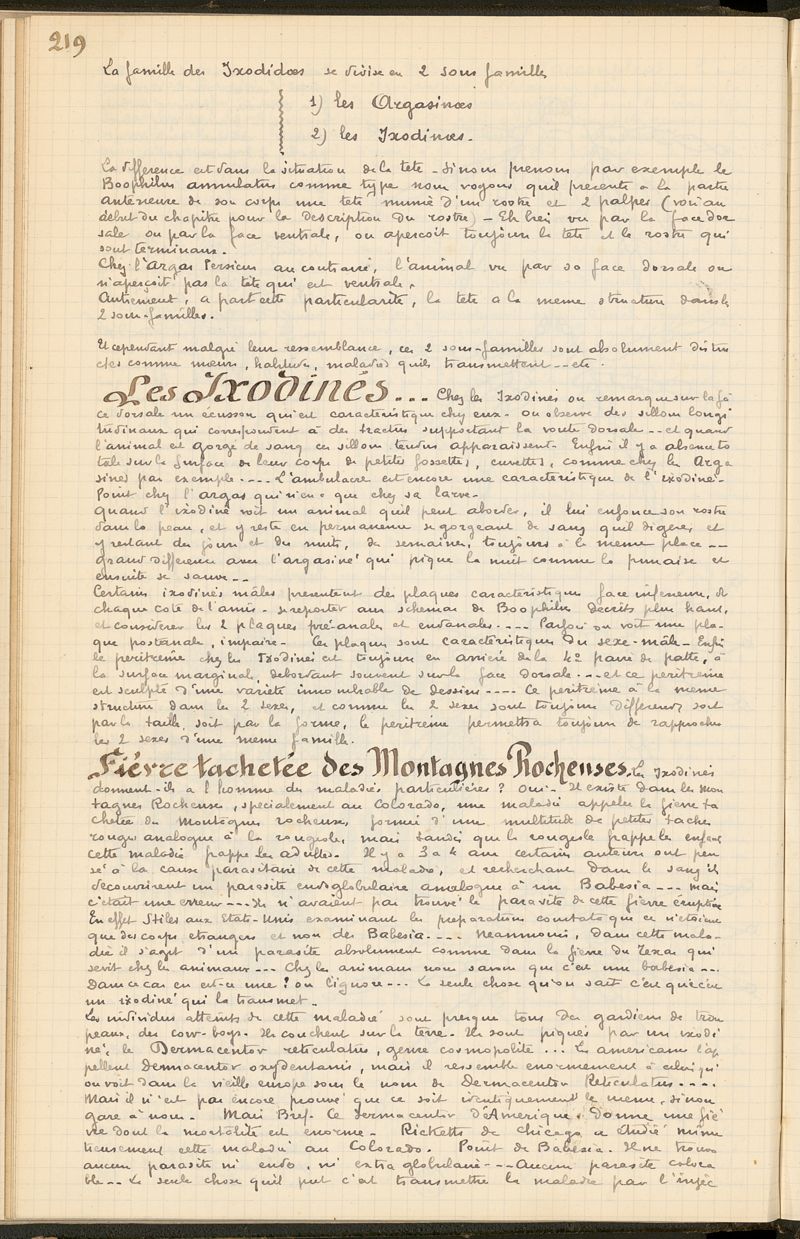 219
La famille des Ixodidæs se divise en 2 sous familles
1) les Argasinæs
2) les Ixodinæs.
La difference est dans la situation de la tete - si nous prenons par exemple le
Boophilus annulatus comme type nous voyons qu'il presente a la partie
anterieure de son corps une tete munie d'un rostre et 2 palpes (voir au
debut du chapitre pour la description du rostre) - Eh bien vu par la face dor
sale ou par la face ventrale, on aperçoit toujours la tete et le rostre qui
sont terminaux.
Chez l'Argas Persicus au contraire, l'animal vu par sa face dorsale on
n'aperçoit pas la tete qui est ventrale.
Autrement, a part cette particularité, la tete a la meme structure dans les
2 sous-familles.
Et cependant malgré leur ressemblance, ces 2 sous-familles sont absolument distin
ctes comme mœurs, habitudes, maladies qu'ils transmettent -- etc.
Les Ixodinés... Chez les Ixodinés on remarque sur la fa
ce dorsale un écusson qui est caracteristique chez eux - on observe des sillons longi
tudinaux qui correspondent à des tractus supportant la voute dorsale -- et quand
l'animal est gorgé de sang ces sillons tendus apparaissent. Enfin il y a absence to
tale sur la surface de leur corps de petites fossettes, cuvettes, comme chez les Arga
sinés par exemple. --- L'ambulacre est encore une caracteristique de l'ixodiné -
Point chez l'argas qui n'en a que chez sa larve.
Quand l'ixodiné voit un animal qu'il peut aborder, il lui enfonce son rostre
dans la peau, et y reste en permanence se gorgeant de sang qu'il digere, et
y restant des jours et des nuits, des semaines, toujours à la meme place --
grande difference avec l'argasiné qui pique la nuit comme la punaise et
ensuite se sauve --
Certains ixodinés mâles presentent des plaques caracteristiques face inferieure, de
chaque coté de l'anus - se reporter aux schemas de Boophilus décrits plus haut,
et considerer les 2 plaques pré-anales et ---- Parfois on voit une pla-
que postanale, impaire - Ces plaques sont caracteristiques du sexe-mâle - Enfin
le peritreme chez les Ixodinés est toujours en arriere de la 4e paire de pattes, à
la surface marginale, debordant souvent sur la face dorsale --- et ce peritreme
est sculpté d'une varieté innombrable de dessins ---- Ce peritreme a la meme
structure dans les 2 sexes, et comme les 2 sexes sont toujours differents soit
par la taille, soit par la forme, le peritreme permettra toujours de rapprocher
les 2 sexes d'une meme famille.
Fiévre tachetée des Montagnes Rocheuses. Les Ixodinés
donnent-ils a l'homme des maladies particulieres? Oui - Il existe dans les Mon
tagnes Rocheuses, specialement au Colorado, une maladie appelée la fievre ta
chetée des Montagnes rocheuses, formée d'une multitude de petites taches
rouges analogue à la rougeole, mais tandis que la rougeole frappe les enfants
cette maladie frappe les adultes. Il y a 3 a 4 ans certains auteurs ont pen
sé à la cause parasitaire de cette maladie, et recherchant dans le sang ils
decouvrirent un parasite endoglobulaire analogue à un Babesia --- mais
c'était une erreur --- Ils n'avaient pas trouvé le parasite de cette fievre éruptive
En effet Stiles aux Etats-Unis examinant les preparations constata que ce n'étaient
que des corps etrangers et non des Babesia ---- Neanmoins, dans cette mala-
die il s'agit d'un parasite absolument comme dans la fievre du Texas qui
sevit chez les animaux --- Chez les animaux nous savons que c'est une babesia ---
Dans ce cas en est-ce une? on l'ignore --- La seule chose qu'on sait c'est que c'est
un ixodiné qui la transmet..
Les individus atteints de cette maladie sont presque tous des gardiens de trou
peaux, des cow-boys. Ils couchent sur la terre. Ils sont piqués par un ixodi
né, le Dermacentor reticulatus, genre cosmopolite ... Les americains l'ap
pellent Dermacentor oxydentanis, mais il ressemble enormement à celui qu'
on voit dans la vieille europe sous le nom de Dermacentor Reticulatus ----
Mais il n'est pas encore prouvé que ce soit identiquement le meme, sinon
gare à nous. Mais Bref. Ce dermacentor d'Amerique donne une fiè
vre dont la mortalité est enorme - Ricketts de Chicago a étudié minu
tieusement cette maladie au Colorado. Point de Babesia. Il ne trouva
aucun parasite ni endo, ni extra globulaire --- Aucun parasite colora
ble -- La seule chose qu'il put c'est transmettre la maladie par l'injec